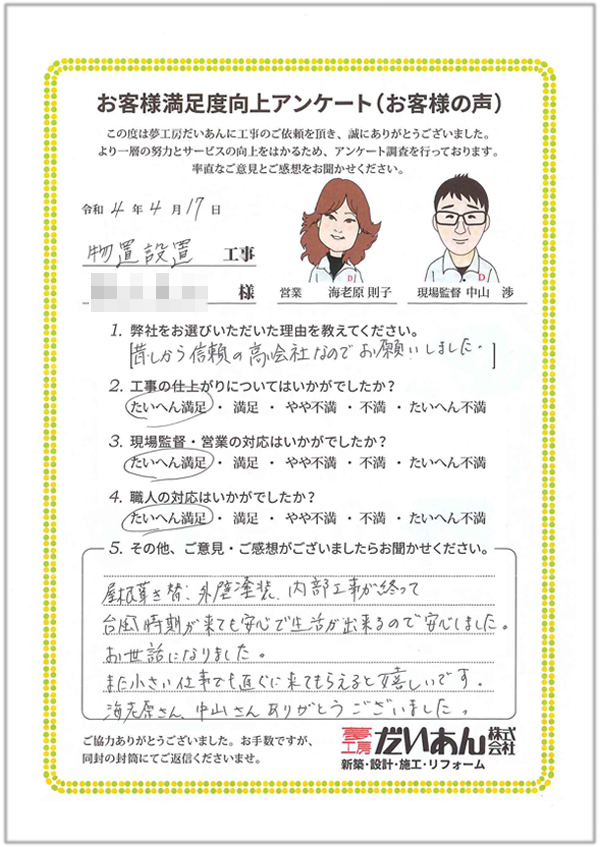 お客様満足度向上アンケート（お客様の声）
この度は夢工房だいあんに工事のご依頼を頂き、誠にありがとうございました。
より一層の努力とサービスの向上をはかるため、アンケート調査を行っております。
率直なご意見とご感想をお聞かせください。
令和 4 年 4 月 17 日
物置設置 工事
様
営業 海老原 則子
現場監督 中山 渉
1. 弊社をお選びいただいた理由を教えてください。
昔しから信頼の高い会社なのでお願いしました。
2. 工事の仕上がりについてはいかがでしたか？
たいへん満足 ・ 満足 ・ やや不満 ・ 不満 ・ たいへん不満
3. 現場監督・営業の対応はいかがでしたか？
たいへん満足 ・ 満足 ・ やや不満 ・ 不満 ・ たいへん不満
4. 職人の対応はいかがでしたか？
たいへん満足 ・ 満足 ・ やや不満 ・ 不満 ・ たいへん不満
5. その他、ご意見・ご感想がございましたらお聞かせください。
屋根葺き替、外壁塗装、内部工事が終って
台風時期が来ても安心で生活が出来るので安心しました。
お世話になりました。
また小さい仕事でも直ぐに来てもらえると嬉しいです。
海老原さん、中山さんありがとうございました。
ご協力ありがとうございました。お手数ですが、
同封の封筒にてご返信くださいませ。
夢工房だいあん株式会社
新築・設計・施工・リフォーム